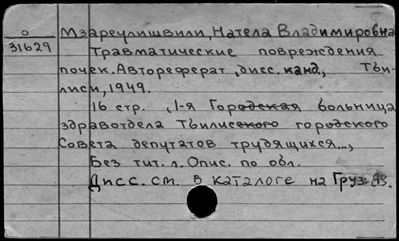 о
31629
Мзареулишвили, Натела Владимировна
Травматические повреждения
почек. Автореферат, дисс. канд., Тби-
лиси, 1949.
16 стр., 1-я Городская больница
здравотдела Тбилисского городского
Совета депутатов трудящихся...,
Без тит. л. Опис. по обл.
Дисс. см. в каталоге на Груз. яз.